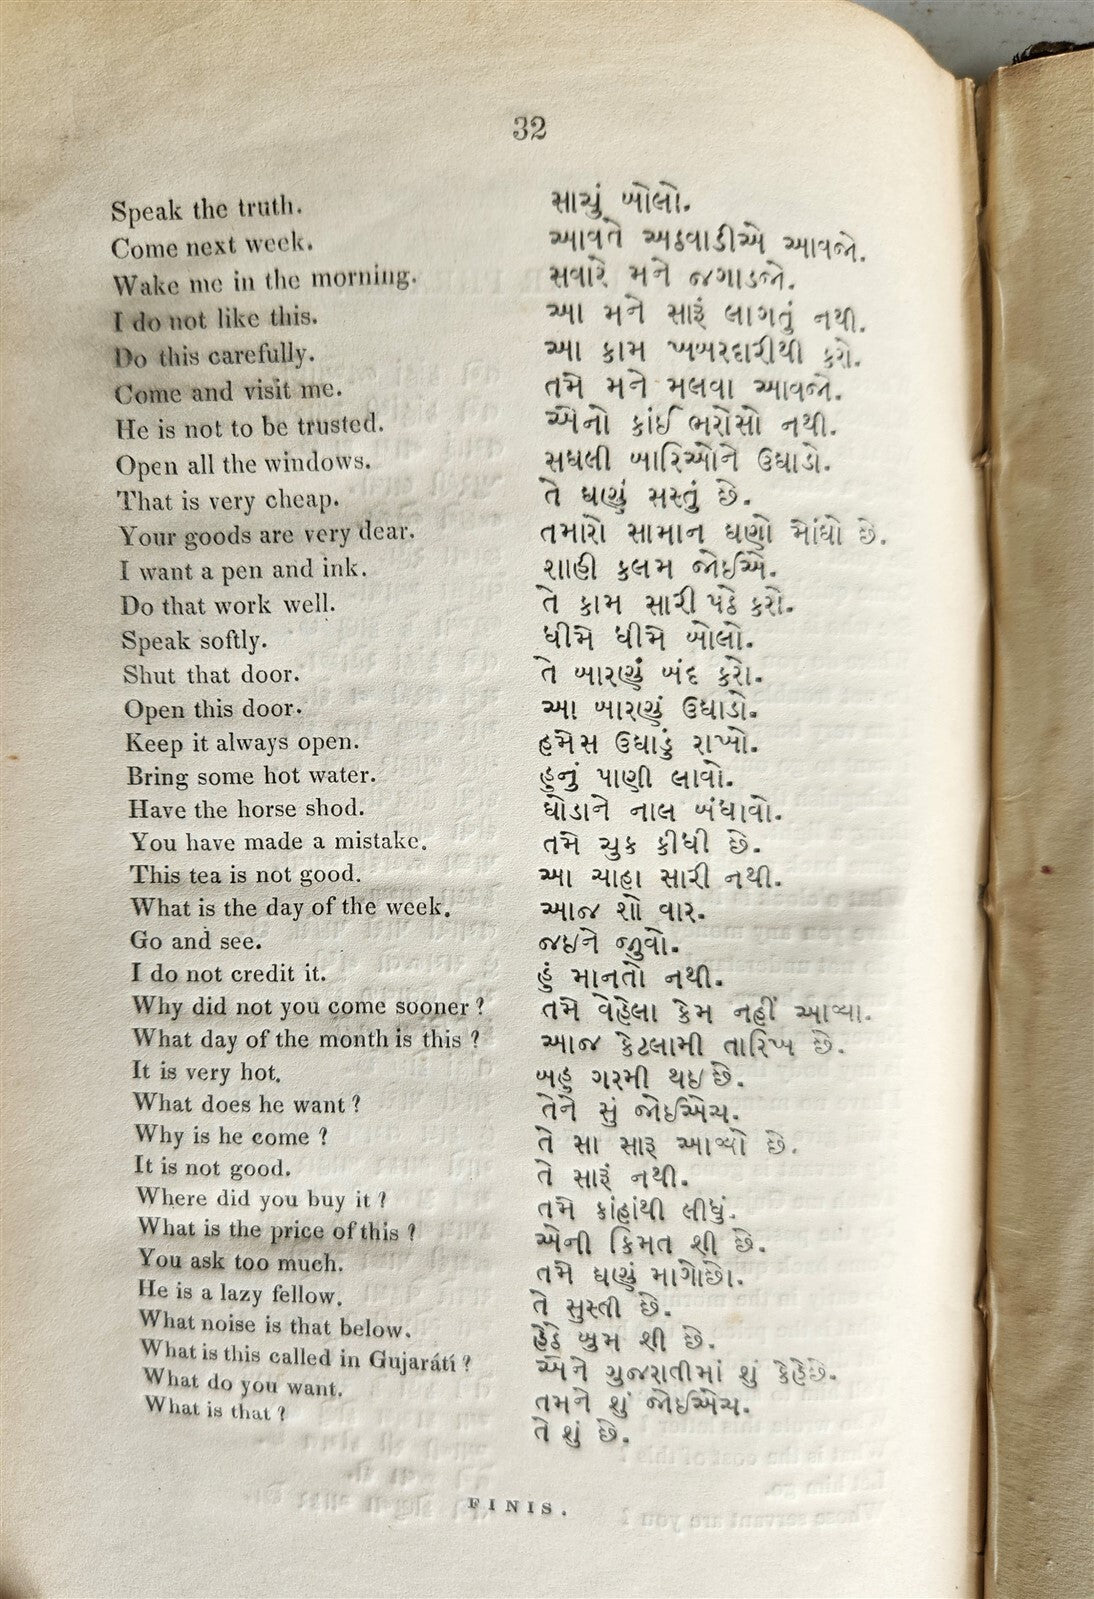 32
Speak the truth. સાચું બોલો.
Come next week. આવતે અઠવાડીએ આવજો.
Wake me in the morning. સવારે મને જગાડજો.
I do not like this. આ મને સારૂં લાગતું નથી.
Do this carefully. આ કામ ખબરદારીથી કરો.
Come and visit me. તમે મને મલવા આવજો.
He is not to be trusted. એનો કાંઈ ભરોસો નથી.
Open all the windows. સઘલી બારિઓને ઉઘાડો.
That is very cheap. તે ઘણું સસ્તું છે.
Your goods are very dear. તમારો સામાન ઘણો મોંઘો છે.
I want a pen and ink. શાહી કલમ જોઈએ.
Do that work well. તે કામ સારી પઠે કરો.
Speak softly. ધીમે ધીમે બોલો.
Shut that door. તે બારણું બંદ કરો.
Open this door. આ બારણું ઉઘાડો.
Keep it always open. હમેસ ઉઘાડું રાખો.
Bring some hot water. હુનું પાણી લાવો.
Have the horse shod. ઘોડાને નાલ બંધાવો.
You have made a mistake. તમે ચુક કીધી છે.
This tea is not good. આ ચાહા સારી નથી.
What is the day of the week. આજ શો વાર.
Go and see. જઇને જુવો.
I do not credit it. હું માનતો નથી.
Why did not you come sooner? તમે વેહેલા કેમ નહીં આવ્યા.
What day of the month is this? આજ કેટલામી તારિખ છે.
It is very hot. બહુ ગરમી થઇ છે.
What does he want? તેને સું જોઈએચ.
Why is he come? તે સા સારૂ આવ્યો છે.
It is not good. તે સારૂં નથી.
Where did you buy it? તમે કાંહાંથી લીધું.
What is the price of this? એની કિમત શી છે.
You ask too much. તમે ઘણું માગોછો.
He is a lazy fellow. તે સુસ્તી છે.
What noise is that below. હેઠે બુમ શી છે.
What is this called in Gujarátí? એને ગુજરાતીમાં શું કેહેછે.
What do you want. તમને શું જોઈએચ.
What is that? તે શું છે.
FINIS.